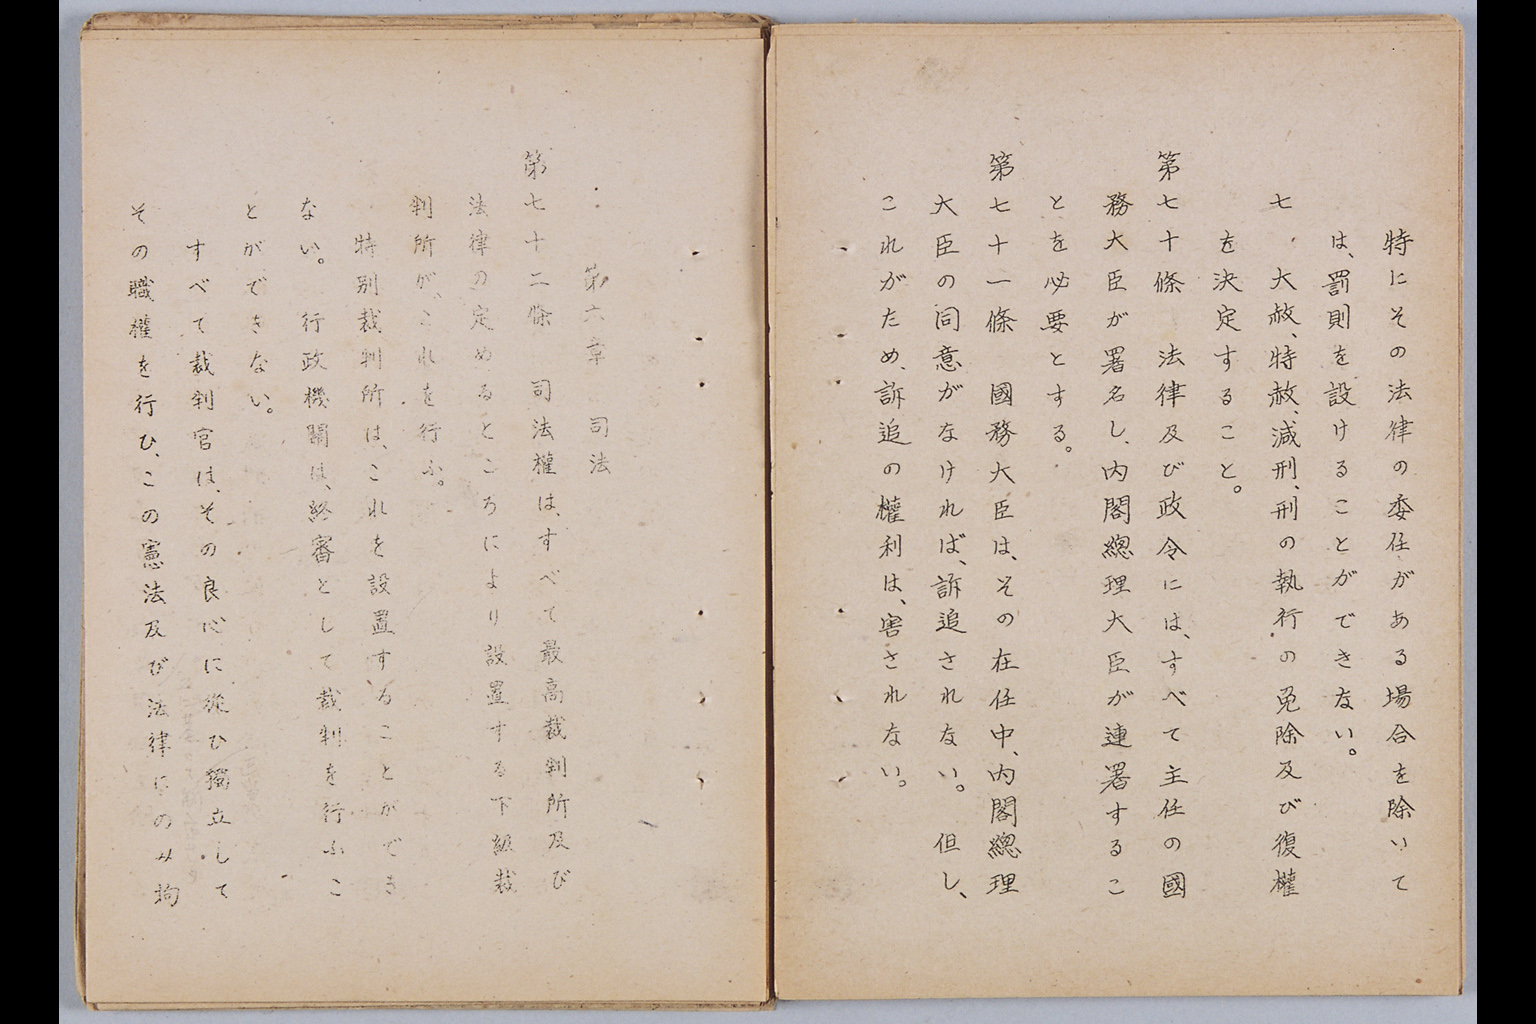 特にその法律の委任がある場合を除いて
は、罰則を設けることができない。
七　大赦、特赦、減刑、刑の執行の免除及び復權
を決定すること。
第七十條　法律及び政令には、すべて主任の國
務大臣が署名し、内閣總理大臣が連署するこ
とを必要とする。
第七十一條　國務大臣は、その在任中、内閣總理
大臣の同意がなければ、訴追されない。但し、
これがため、訴追の權利は、害されない。
第六章　司法
第七十二條　司法權は、すべて最高裁判所及び
法律の定めるところにより設置する下級裁
判所が、これを行ふ。
特別裁判所は、これを設置することができ
ない。行政機關は、終審として裁判を行ふこ
とができない。
すべて裁判官は、その良心に從ひ獨立して
その職權を行ひ、この憲法及び法律にのみ拘